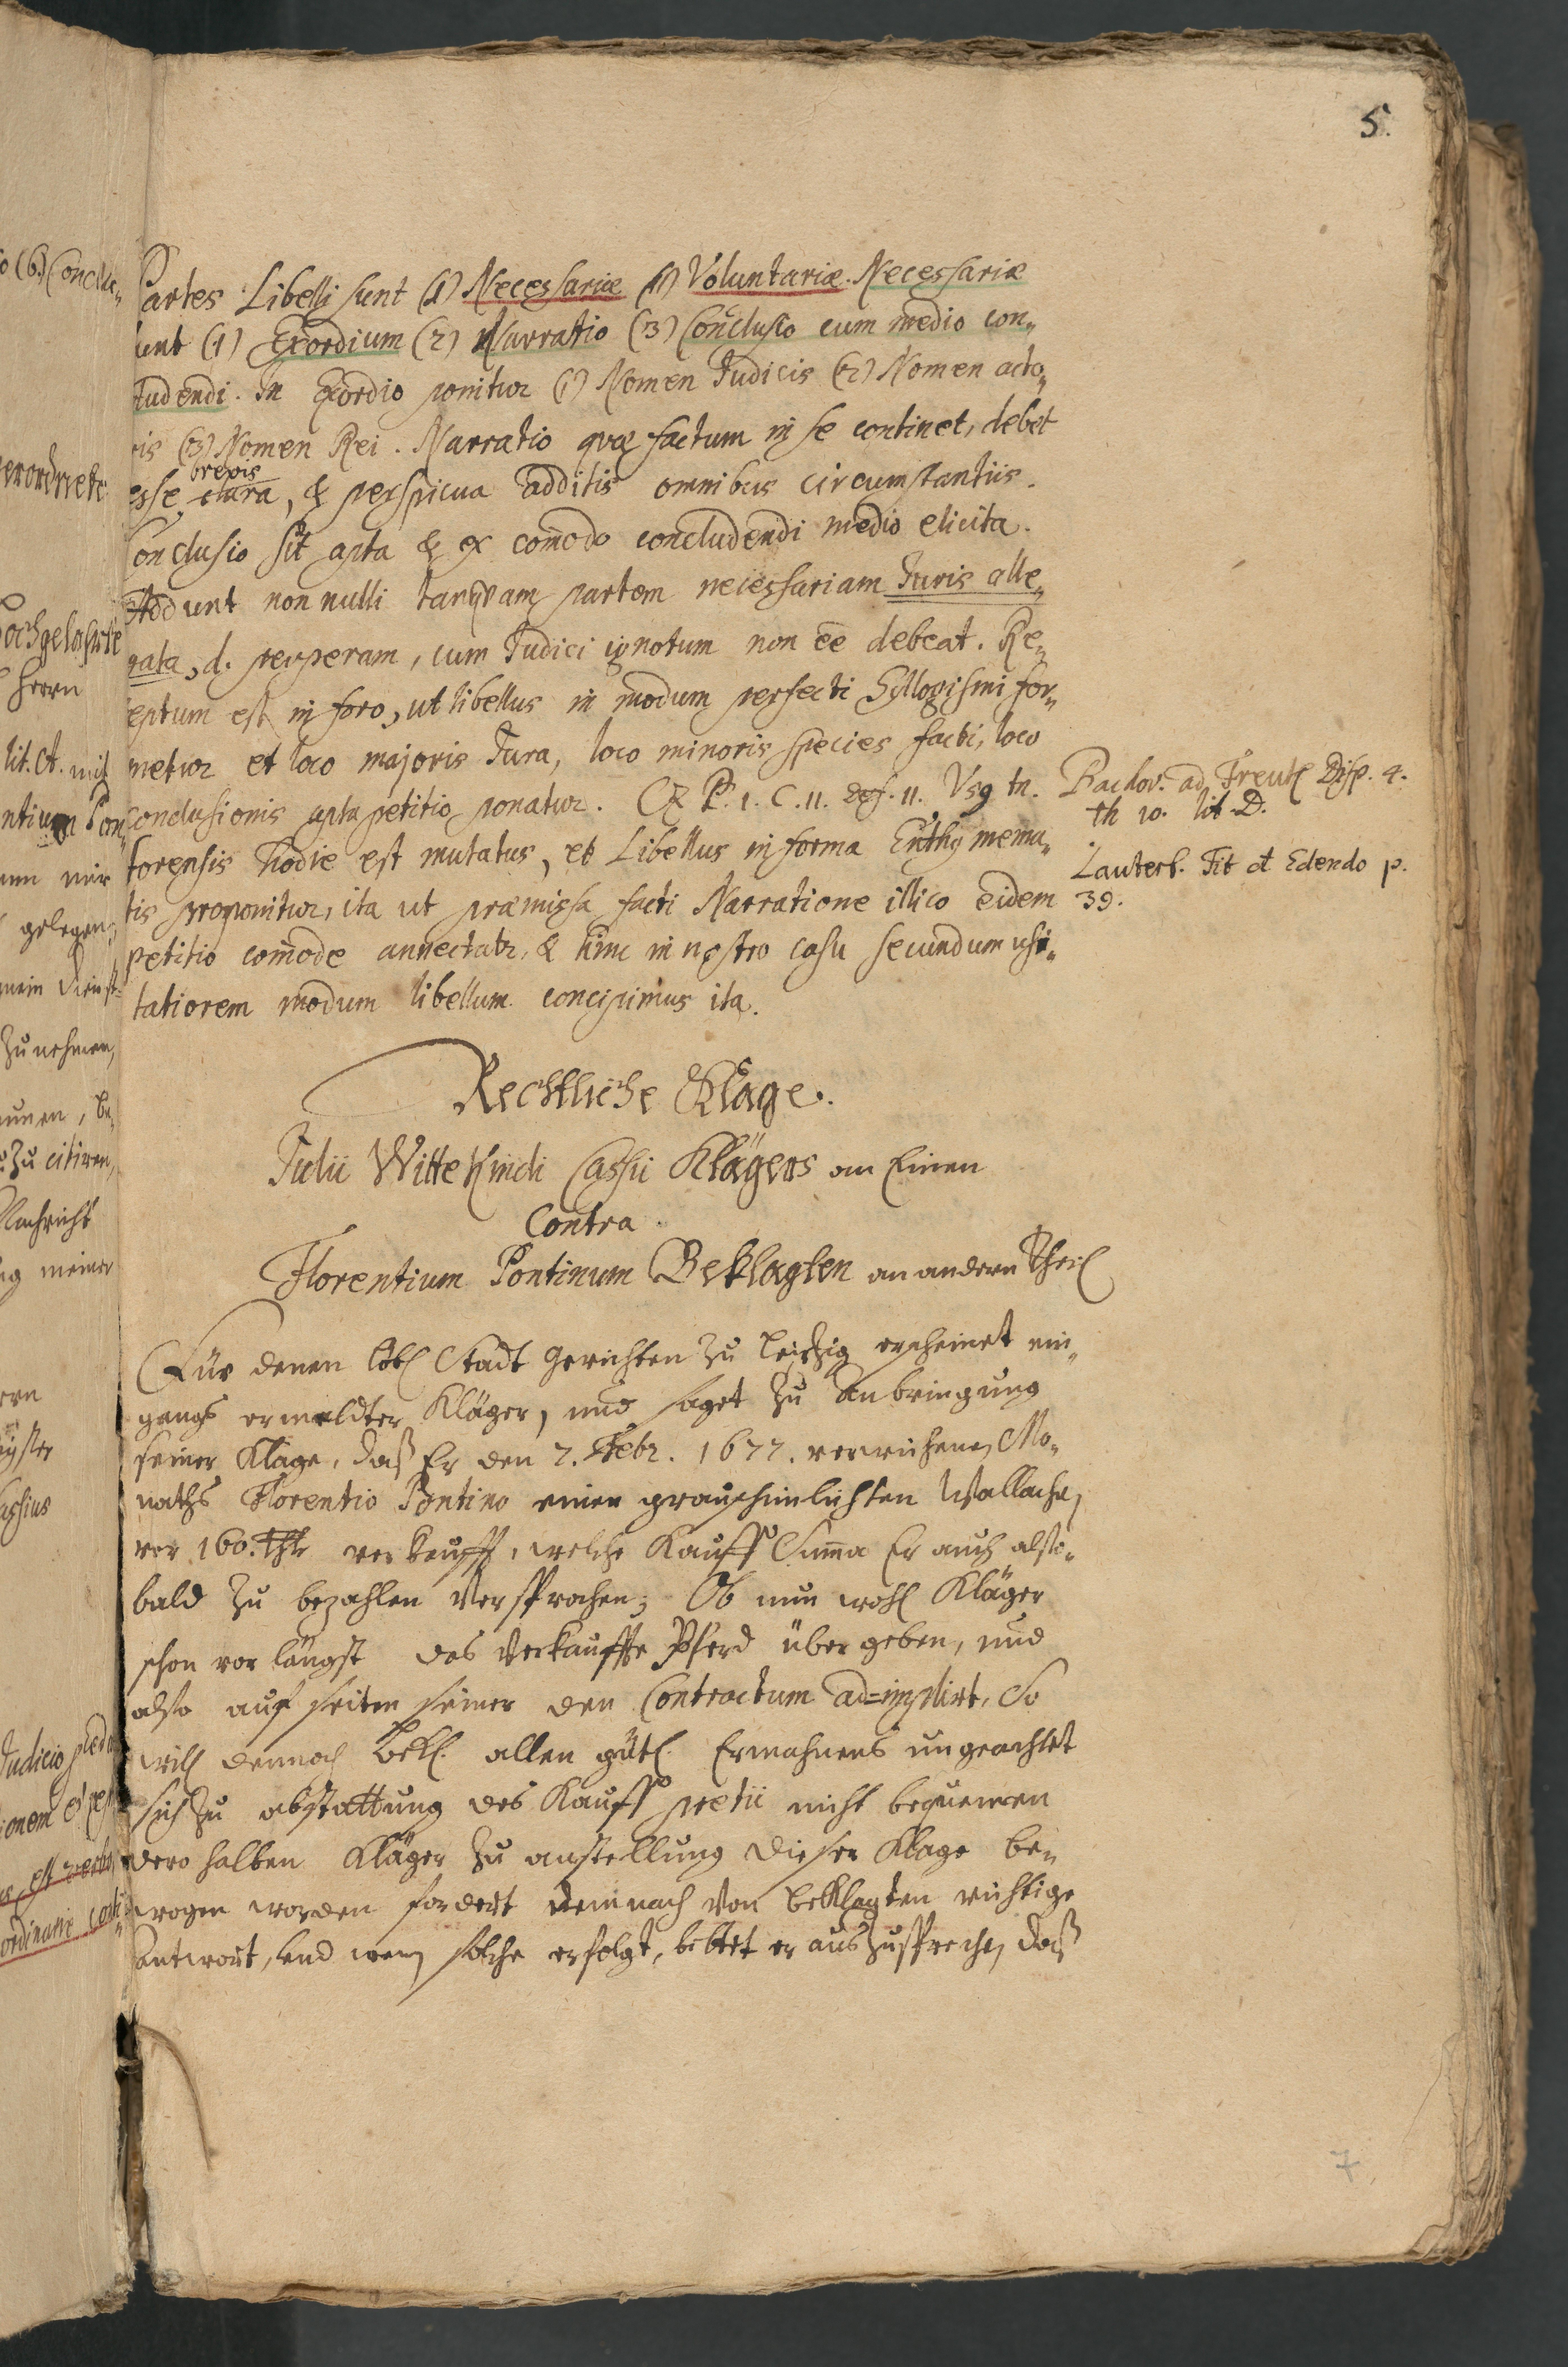 5.
Partes Libelli sunt (I) Necessariæ (II) Voluntariæ. Necessariæ
sunt (1) Exordium (2) Narratio (3) Conclusio cum medio con„
cludendi. In Exordio ponitur (1) Nomen Judicis (2) Nomen acto„
ris (3) Nomen Rei. Narratio quæ factum in se continet, debet
brevis
esse, clara, & perspicua additis omnibus circumstantiis.
Conclusio sit apta & ex com̃odo concludendi medio elicita.
Addunt non nulli tanquam partem necessariam Juris alle„
gata, d. perperam, cum Judici ignotum non eẽ debeat. Re„
ceptum est in foro, ut libellus in modum perfecti Syllogismi for„
metur et loco majoris Jura, loco minoris species facti, loco
conclusionis apta petitio ponatur. C. P. 1. C. 11. def. 11. Usq tn.
forensis hodie est mutatus, et Libellus in forma Enthymema„
tis proponitur, ita ut præmissa facti Narratione illico eidem
petitio com̃ode annectatr. & hinc in nostro casu secundum usi„
tatiorem modum libellum concipimus ita.
Bachov. ad Treutl Disp. 4.
th 10. lit D.
Lauterb. Tit d Edendo p.
39.
Rechtliche Klage.
Julii Wittekindi Cassii Klägers an Einen
Contra
Florentium Pontinum Beklagten an andern Theil
Für denen löbl Stadt Gerichten zu Leipzig erscheinet ein„
gangs ermeldter Kläger, und saget zu Anbringung
seiner Klage, daß Er den 7. Febr. 1677. verwichenen Mo„
naths Florentio Pontino einen grauschimlichten Wallachen,
vor 160. Thlr verkaufft, welche Kauff Sum̃a Er auch alsо„
bald zu bezahlen versprochen; Ob nun wohl Kläger
schon vor längst das verkauffte Pferd übergeben, und
also auf seiten seiner den Contractum ad=implirt, So
will dennoch Bekl. allen gütl. Ermahnens ungeachtet
sich zu abstattung des Kauff pretii nicht bequemen
dero halben Kläger zu anstellung dieser Klage be„
wogen worden fordert demnach von beklagten richtige
Antwort, und wenn solche erfolgt, bittet er auszusprechen daß
7